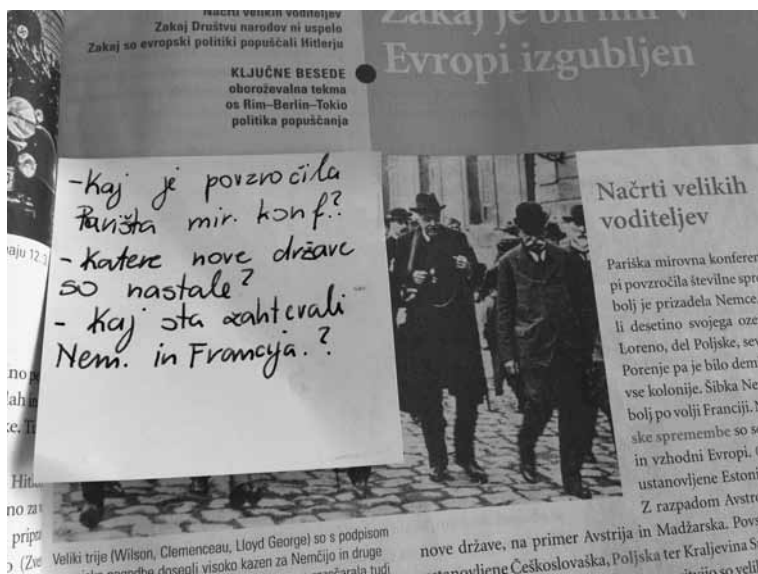 Načrti velikih voditeljev
Zakaj Društvu narodov ni uspelo
Zakaj so evropski politiki popuščali Hitlerju
KLJUČNE BESEDE
oboroževalna tekma
os Rim–Berlin–Tokio
politika popuščanja
Zakaj je bil mir v
Evropi izgubljen
-Kaj je povzročila
Pariška mir. konf.?
- Katere nove države
so nastale?
- Kaj sta zahtevali
Nem. in Francija.?
Načrti velikih
voditeljev
Pariška mirovna konferen
pi povzročila številne spre
bolj je prizadela Nemce.
li desetino svojega oze
Loreno, del Poljske, sev
Porenje pa je bilo dem
vse kolonije. Šibka Ne
bolj po volji Franciji. N
ske spremembe so s
in vzhodni Evropi.
ustanovljene Estoni
Z razpadom Avstr
nove države, na primer Avstrija in Madžarska. Pov
stanovljene Češkoslovaška, Poljska ter Kraljevina S
Veliki trije (Wilson, Clemenceau, Lloyd George) so s podpisom
pogodbe dosegli visoko kazen za Nemčijo in druge